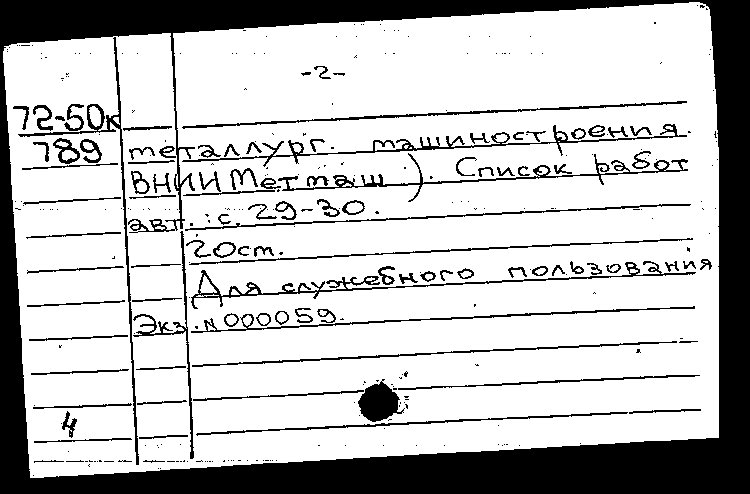 -2-
72-50к
789
металлург. машиностроения.
ВНИИМетмаш). Список работ
авт.: с. 29-30.
20см.
Для служебного пользования
Экз. N 000059.
4